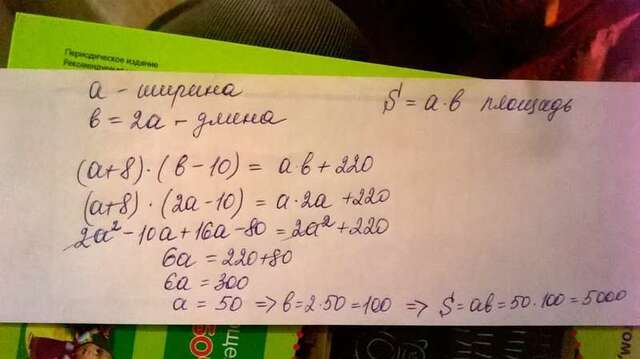 Периодическое издание
а - ширина
в = 2а - длина
S = а·в площадь
(а+8)·(в-10) = а·в + 220
(а+8)·(2а-10) = а·2а + 220
2а² - 10а + 16а - 80 = 2а² + 220
6а = 220 + 80
6а = 300
а = 50 => в = 2·50 = 100 => S = ав = 50·100 = 5000